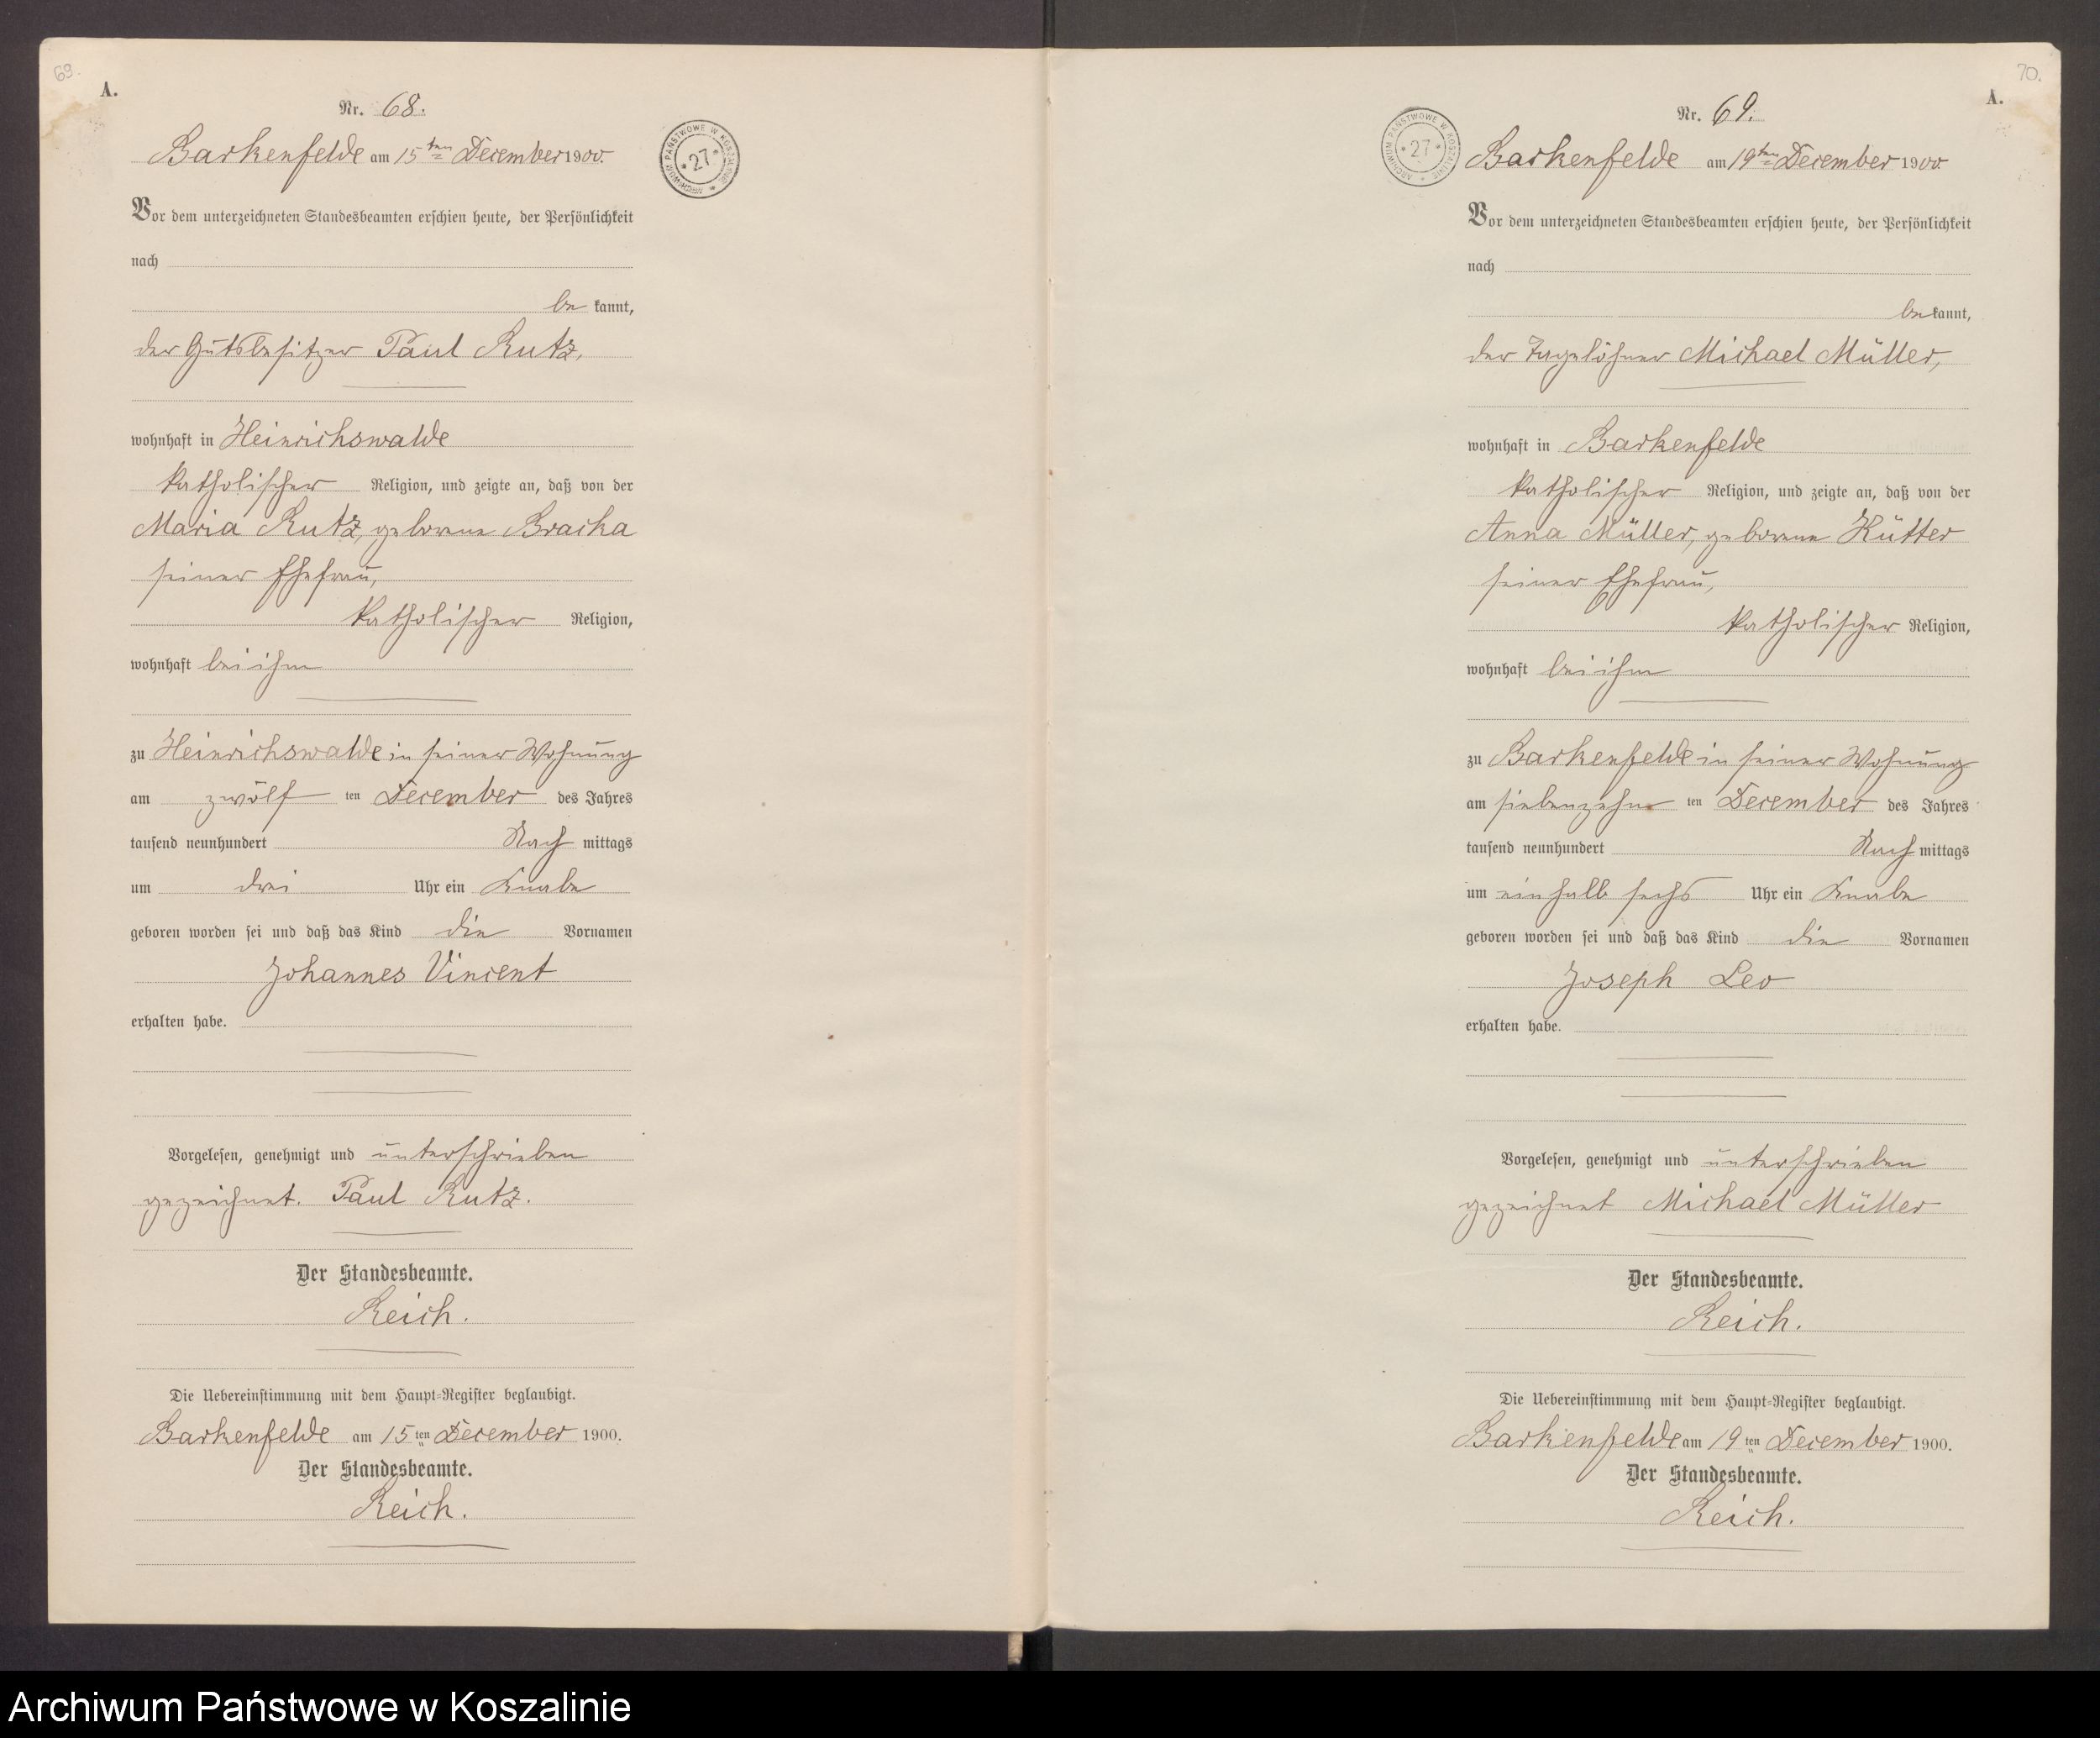 69.
A.
Nr. 68.
Barkenfelde am 15ten December 1900.
ARCHIWUM PAŃSTWOWE W KOSZALINIE * 27 *
Vor dem unterzeichneten Standesbeamten erschien heute, der Persönlichkeit
nach
be kannt,
der Gutsbesitzer Paul Rutz,
wohnhaft in Heinrichswalde
katholischer Religion, und zeigte an, daß von der
Maria Rutz, geborene Bracka
seiner Ehefrau,
katholischer Religion,
wohnhaft bei ihm
zu Heinrichswalde in seiner Wohnung
am zwölf ten December des Jahres
tausend neunhundert Nach mittags
um drei Uhr ein Knabe
geboren worden sei und daß das Kind die Vornamen
Johannes Vincent
erhalten habe.
Vorgelesen, genehmigt und unterschrieben
gezeichnet. Paul Rutz.
Der Standesbeamte.
Reich.
Die Uebereinstimmung mit dem Haupt-Register beglaubigt.
Barkenfelde am 15 ten December 1900.
Der Standesbeamte.
Reich.
70.
A.
Nr. 69.
ARCHIWUM PAŃSTWOWE W KOSZALINIE * 27 *
Barkenfelde am 19ten December 1900
Vor dem unterzeichneten Standesbeamten erschien heute, der Persönlichkeit
nach
be kannt,
der Tagelöhner Michael Müller,
wohnhaft in Barkenfelde
katholischer Religion, und zeigte an, daß von der
Anna Müller, geborene Hütter
seiner Ehefrau,
katholischer Religion,
wohnhaft bei ihm
zu Barkenfelde in seiner Wohnung
am siebenzehn ten December des Jahres
tausend neunhundert Nach mittags
um ein halb sechs Uhr ein Knabe
geboren worden sei und daß das Kind die Vornamen
Joseph Leo
erhalten habe.
Vorgelesen, genehmigt und unterschrieben
gezeichnet Michael Müller
Der Standesbeamte.
Reich.
Die Uebereinstimmung mit dem Haupt-Register beglaubigt.
Barkenfelde am 19 ten December 1900.
Der Standesbeamte.
Reich.
Archiwum Państwowe w Koszalinie